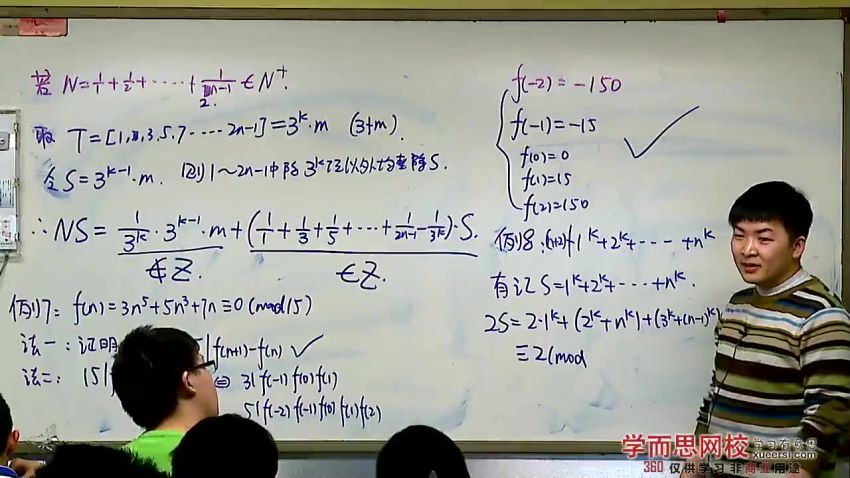 若 N=1/1+1/2+·····+1/2n-1 ∈N⁺.
取 T=[1,3,5,7·····2n-1]=3^k·m (3∤m).
令S=3^(k-1)·m. 则1~2n-1中除3^k以外均整除S.
∴ NS= 1/3^k·3^(k-1)·m+(1/1+1/3+1/5+···+1/2n-1-1/3^k)·S.
∉Z. ∈Z.
例7: f(n)=3n⁵+5n³+7n≡0(mod15)
法一:证明 f(n+1)-f(n) ✓
法二: 15|f ⇔ 3|f(-1) f(0) f(1)
5|f(-2) f(-1) f(0) f(1) f(2)
f(-2)=-150
f(-1)=-15
f(0)=0
f(1)=15
f(2)=150
✓
例8:(n+2)∤1^k+2^k+····+n^k
有记S=1^k+2^k+····+n^k.
2S=2·1^k+(2^k+n^k)+(3^k+(n-1)^k)
≡2(mod
学而思网校 学习有意思
xueersi.com
360 仅供学习 非商业用途